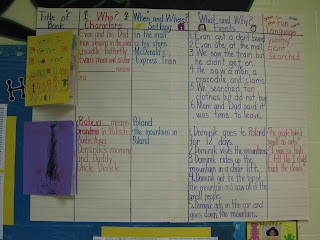 Title of Book
Who? Characters
When and Where? Setting
What and Why? Events
Fun Language
Evan and his Dad
man sleeping in the mall
crocodile butterfly
Evan's mom and sister
in the mall
a toy store
McDonald's
Express Train
1. Evan got a dart board
2. Evan ate at the mall
3. We saw the train but he didn't get on.
4. He saw a man, a crocodile and clams
5. We searched for clothes but did not buy
6. Mom and Dad said it was time to leave.
yummy
giant
searched
Babcia means
grandma in Polish
Auntie Aga
Dominik's mommy
and Daddy
Uncle Darek
Poland
the mountains in
Poland
1. Dominik goes to Poland for 12 days.
2. Dominik visits the mountains
3. Dominik rides up the mountain in a chair lift.
4. Dominik got to the top of the mountain and saw all the small people.
5. Dominik gets in the car and goes down the mountain.
"The people looked
small as ants"
I was so high
I felt like I could
touch the clouds